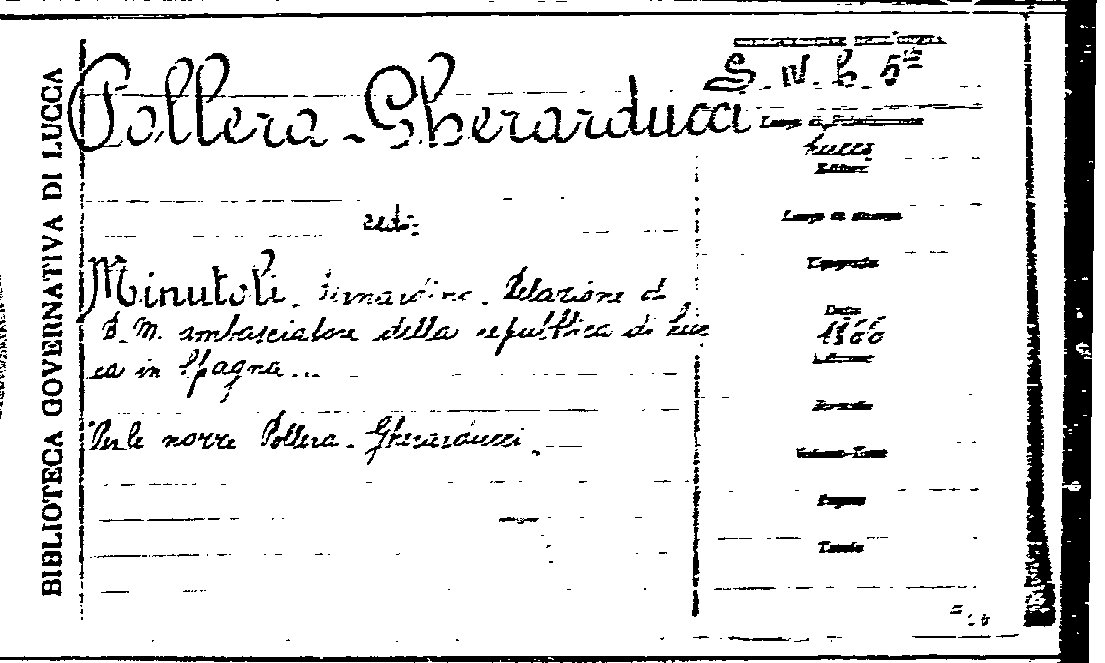 BIBLIOTECA GOVERNATIVA DI LUCCA
S. IV. b. 5
Pollera-Gherarducci
Luogo di Pubblicazione
Lucca
Editore
vedi:
Luogo di stampa
Minutoli. Bernardino. Relazione di
Tipografia
B. M. ambasciatore della repubblica di Luc
Data
1866
ca in Spagna...
Formato
Per le nozze Pollera-Gherarducci.
Volumi-Tomi
Pagine
Tavole